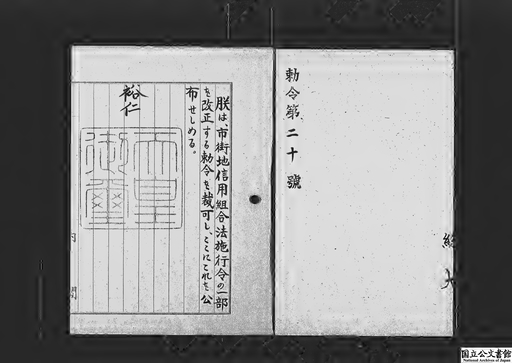 勅令第二十號
朕は、市街地信用組合法施行令の一部
を改正する勅令を裁可し、ここにこれを公
布せしめる。
裕仁
天皇
御璽
内閣
国立公文書館
National Archives of Japan